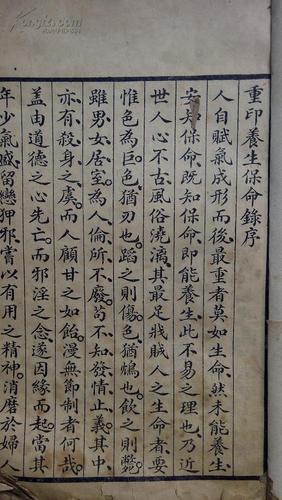 重印養生保命錄序
人自賦氣成形而後最重者莫如生命然未能養生
安知保命既知保命即能養生此不易之理也乃近
世人心不古風俗澆漓其最足戕賊人之生命者要
惟色為巨色猶刃也蹈之則傷色猶鴆也飲之則斃
雖男女居室為人倫所不廢苟不知發情止義其中
亦有殺身之虞而人顧甘之如飴漫無節制者何哉
蓋由道德之心先亡而邪淫之念遂因緣而起當其
年少氣盛留戀狎邪嘗以有用之精神消磨於婦人